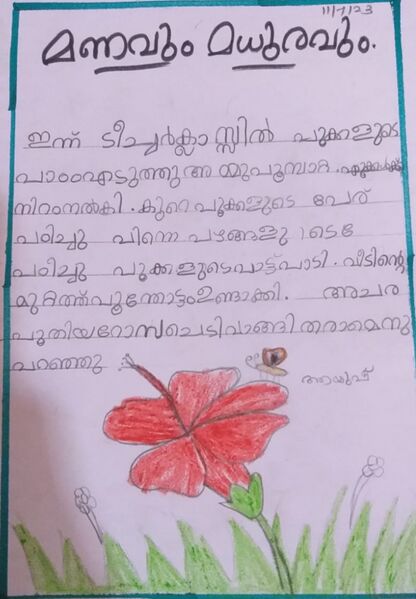 11/7/23
മണവും മധുരവും.
ഇന്ന് ടീച്ചർക്ലാസ്സിൽ പൂക്കളുടെ
പാഠംഎടുത്തു അമ്മുപൂമ്പാറ്റ.
നിറംനൽകി. കുറെ പൂക്കളുടെ പേര്
പഠിച്ചു പിന്നെ പഴങ്ങളു
പഠിച്ചു പൂക്കളുടെപാട്ട്പാടി. വീടിന്റെ
മുറ്റത്ത്പൂന്തോട്ടംഉണ്ടാക്കി. അചര
പുതിയറോസചെടിവാങ്ങിതരാമെന്നു
പറഞ്ഞു
ആയുഷ്